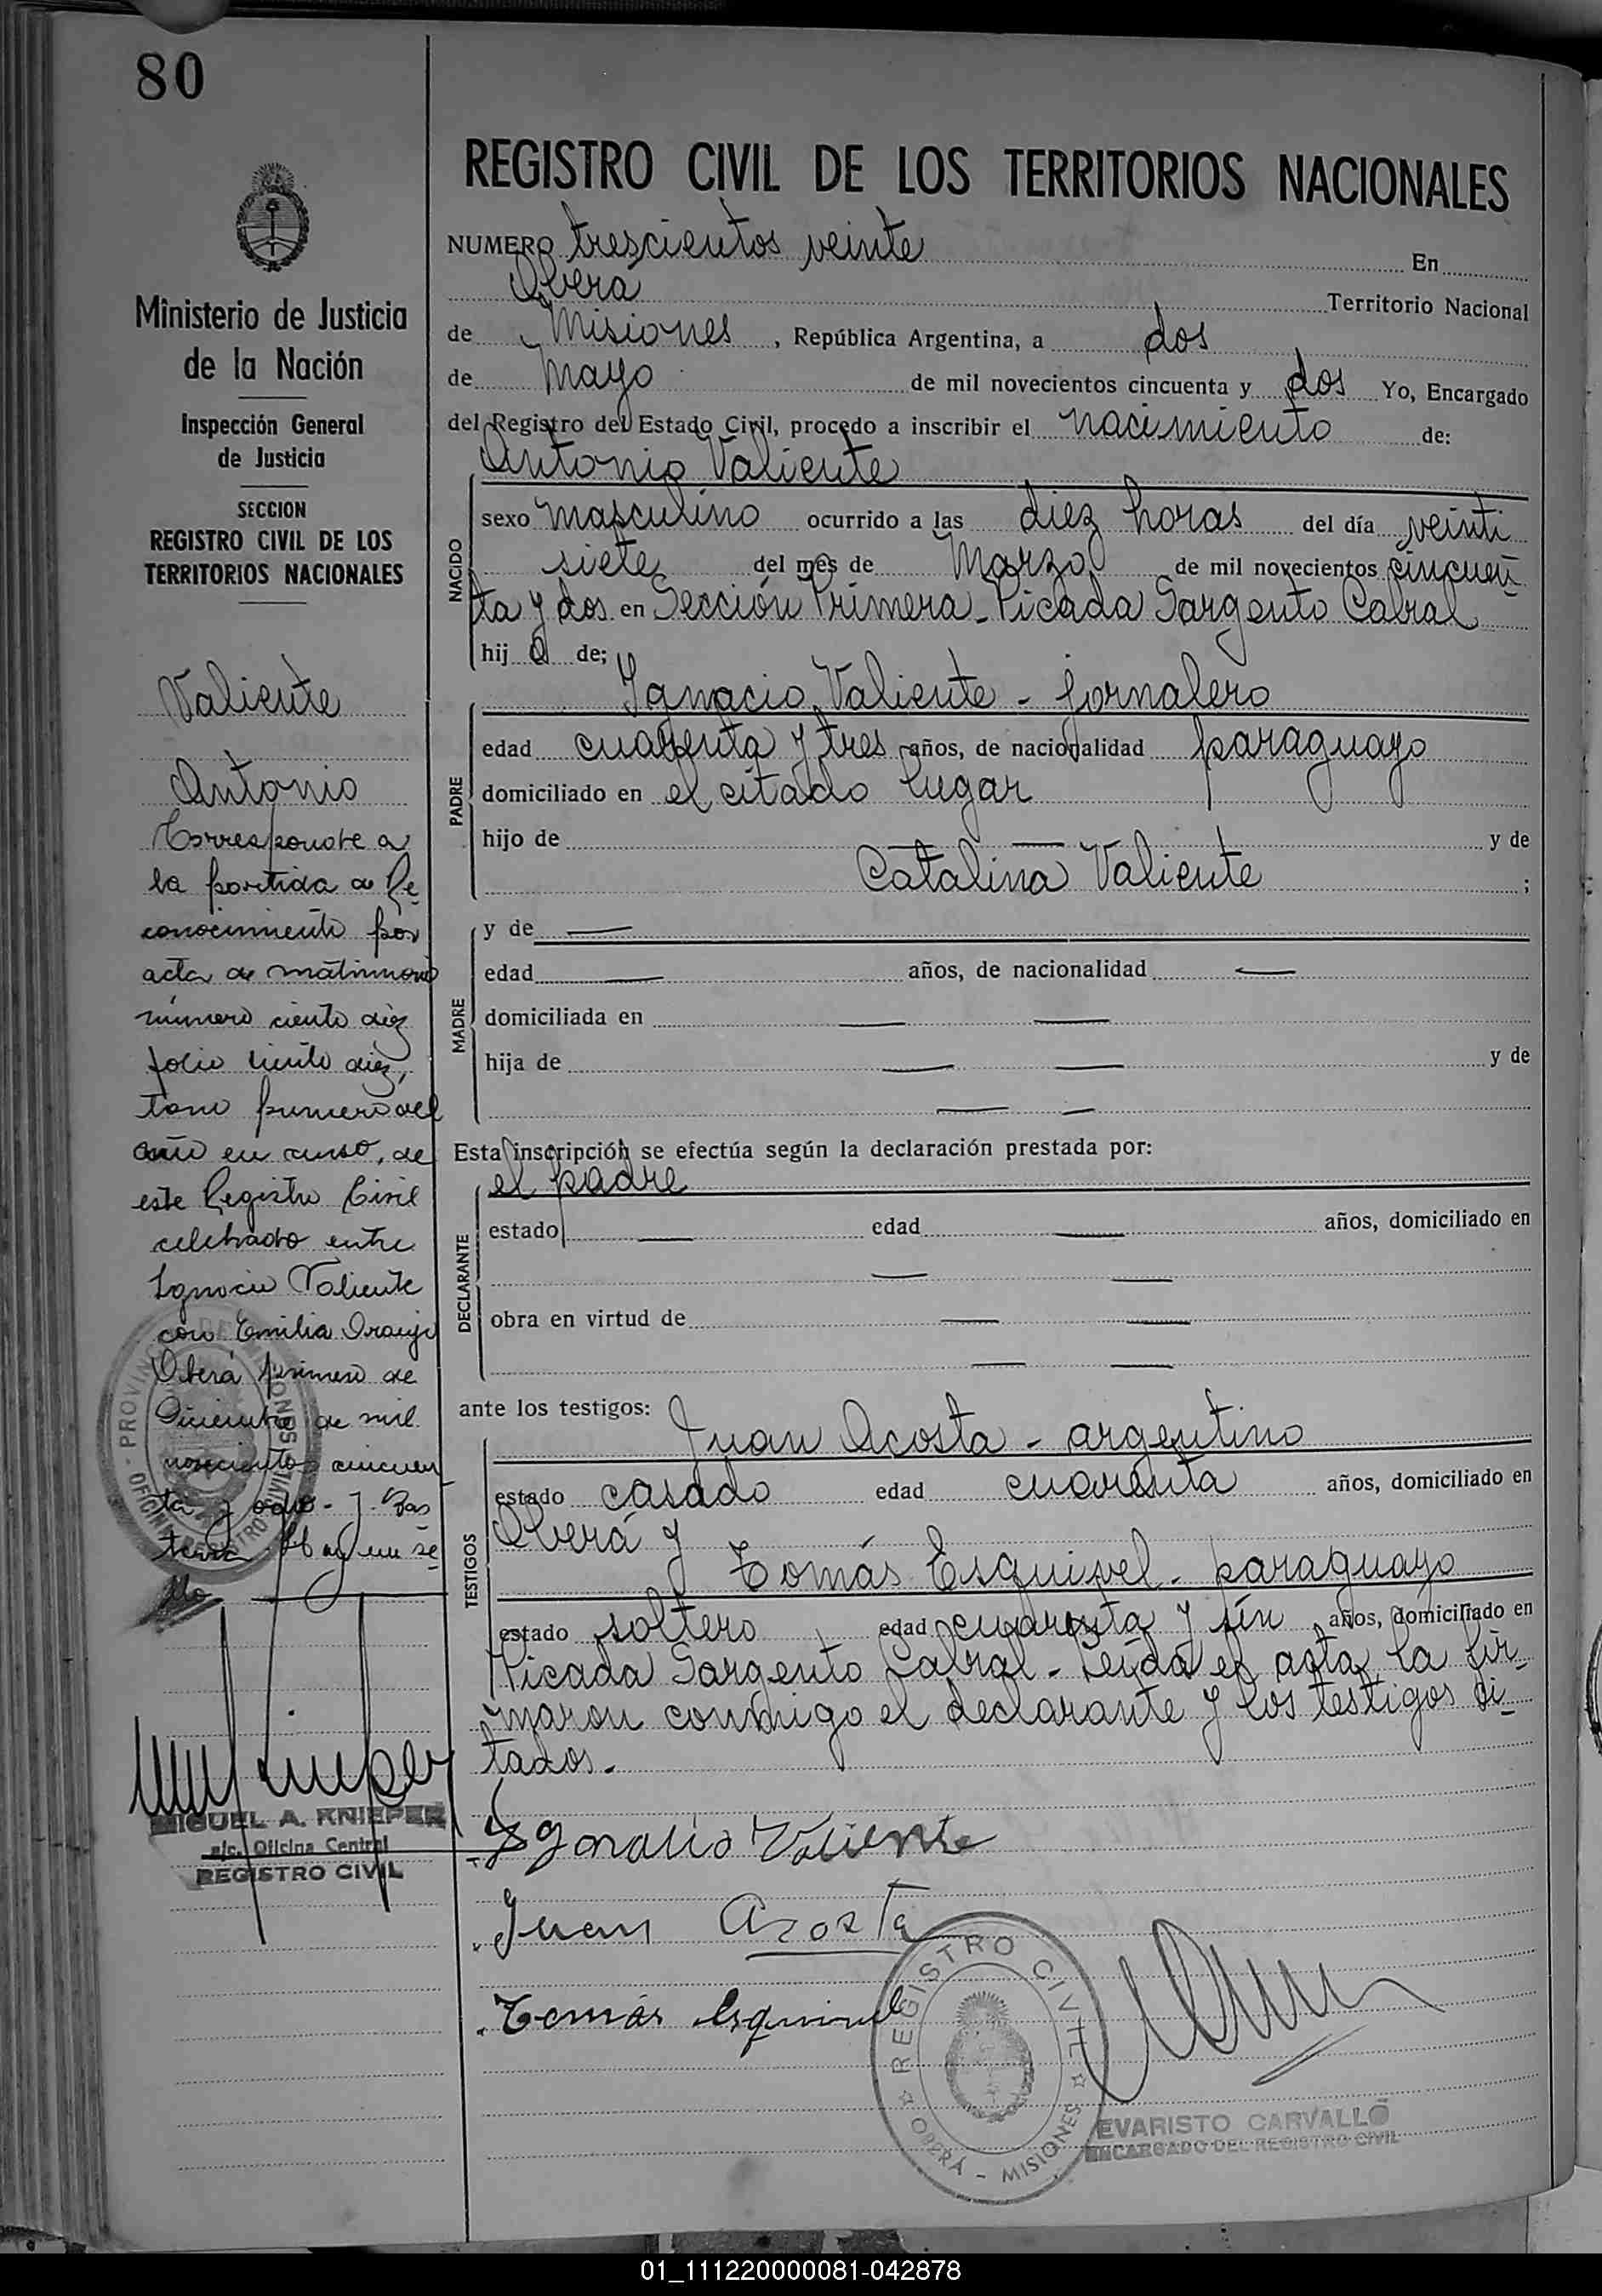 80
Ministerio de Justicia
de la Nación
Inspección General
de Justicia
SECCION
REGISTRO CIVIL DE LOS
TERRITORIOS NACIONALES
Valiente
Antonio
Corresponde a
la partida de Re-
conocimiento por
acta de matrimonio
número ciento diez
folio ciento diez,
tomo primero del
año en curso, de
este Registro Civil
celebrado entre
Ignacio Valiente
con Emilia Araujo
Oberá primero de
Diciembre de mil
novecientos cincuen-
ta y ocho.-
Hay un se-
llo
MIGUEL A. KNIEPER
a/c. Oficina Central
REGISTRO CIVIL
REGISTRO CIVIL DE LOS TERRITORIOS NACIONALES
NUMERO trescientos veinte En
Oberá Territorio Nacional
de Misiones, República Argentina, a dos
de Mayo de mil novecientos cincuenta y dos Yo, Encargado
del Registro del Estado Civil, procedo a inscribir el nacimiento de:
Antonio Valiente
NACIDO
sexo masculino ocurrido a las diez horas del día veinti
siete del mes de Marzo de mil novecientos cincuen-
ta y dos en Sección Primera - Picada Sargento Cabral
hij o de;
Ignacio Valiente - jornalero
PADRE
edad cuarenta y tres años, de nacionalidad paraguayo
domiciliado en el citado lugar
hijo de — y de
Catalina Valiente ;
MADRE
y de —
edad — años, de nacionalidad —
domiciliada en — —
hija de — — y de
— —
Esta inscripción se efectúa según la declaración prestada por:
el padre
DECLARANTE
estado — edad — años, domiciliado en
— —
obra en virtud de — —
— —
ante los testigos: Juan Acosta - argentino
TESTIGOS
estado casado edad cuarenta años, domiciliado en
Oberá y
Tomás Esquivel - paraguayo
estado soltero edad cuarenta y un años, domiciliado en
Picada Sargento Cabral - Leída el acta, la fir-
maron conmigo el declarante y los testigos ci-
tados.
Ignacio Valiente
Juan Acosta
Tomás Esquivel
REGISTRO CIVIL
OBERÁ - MISIONES
EVARISTO CARVALLO
ENCARGADO DEL REGISTRO CIVIL
01_111220000081-042878